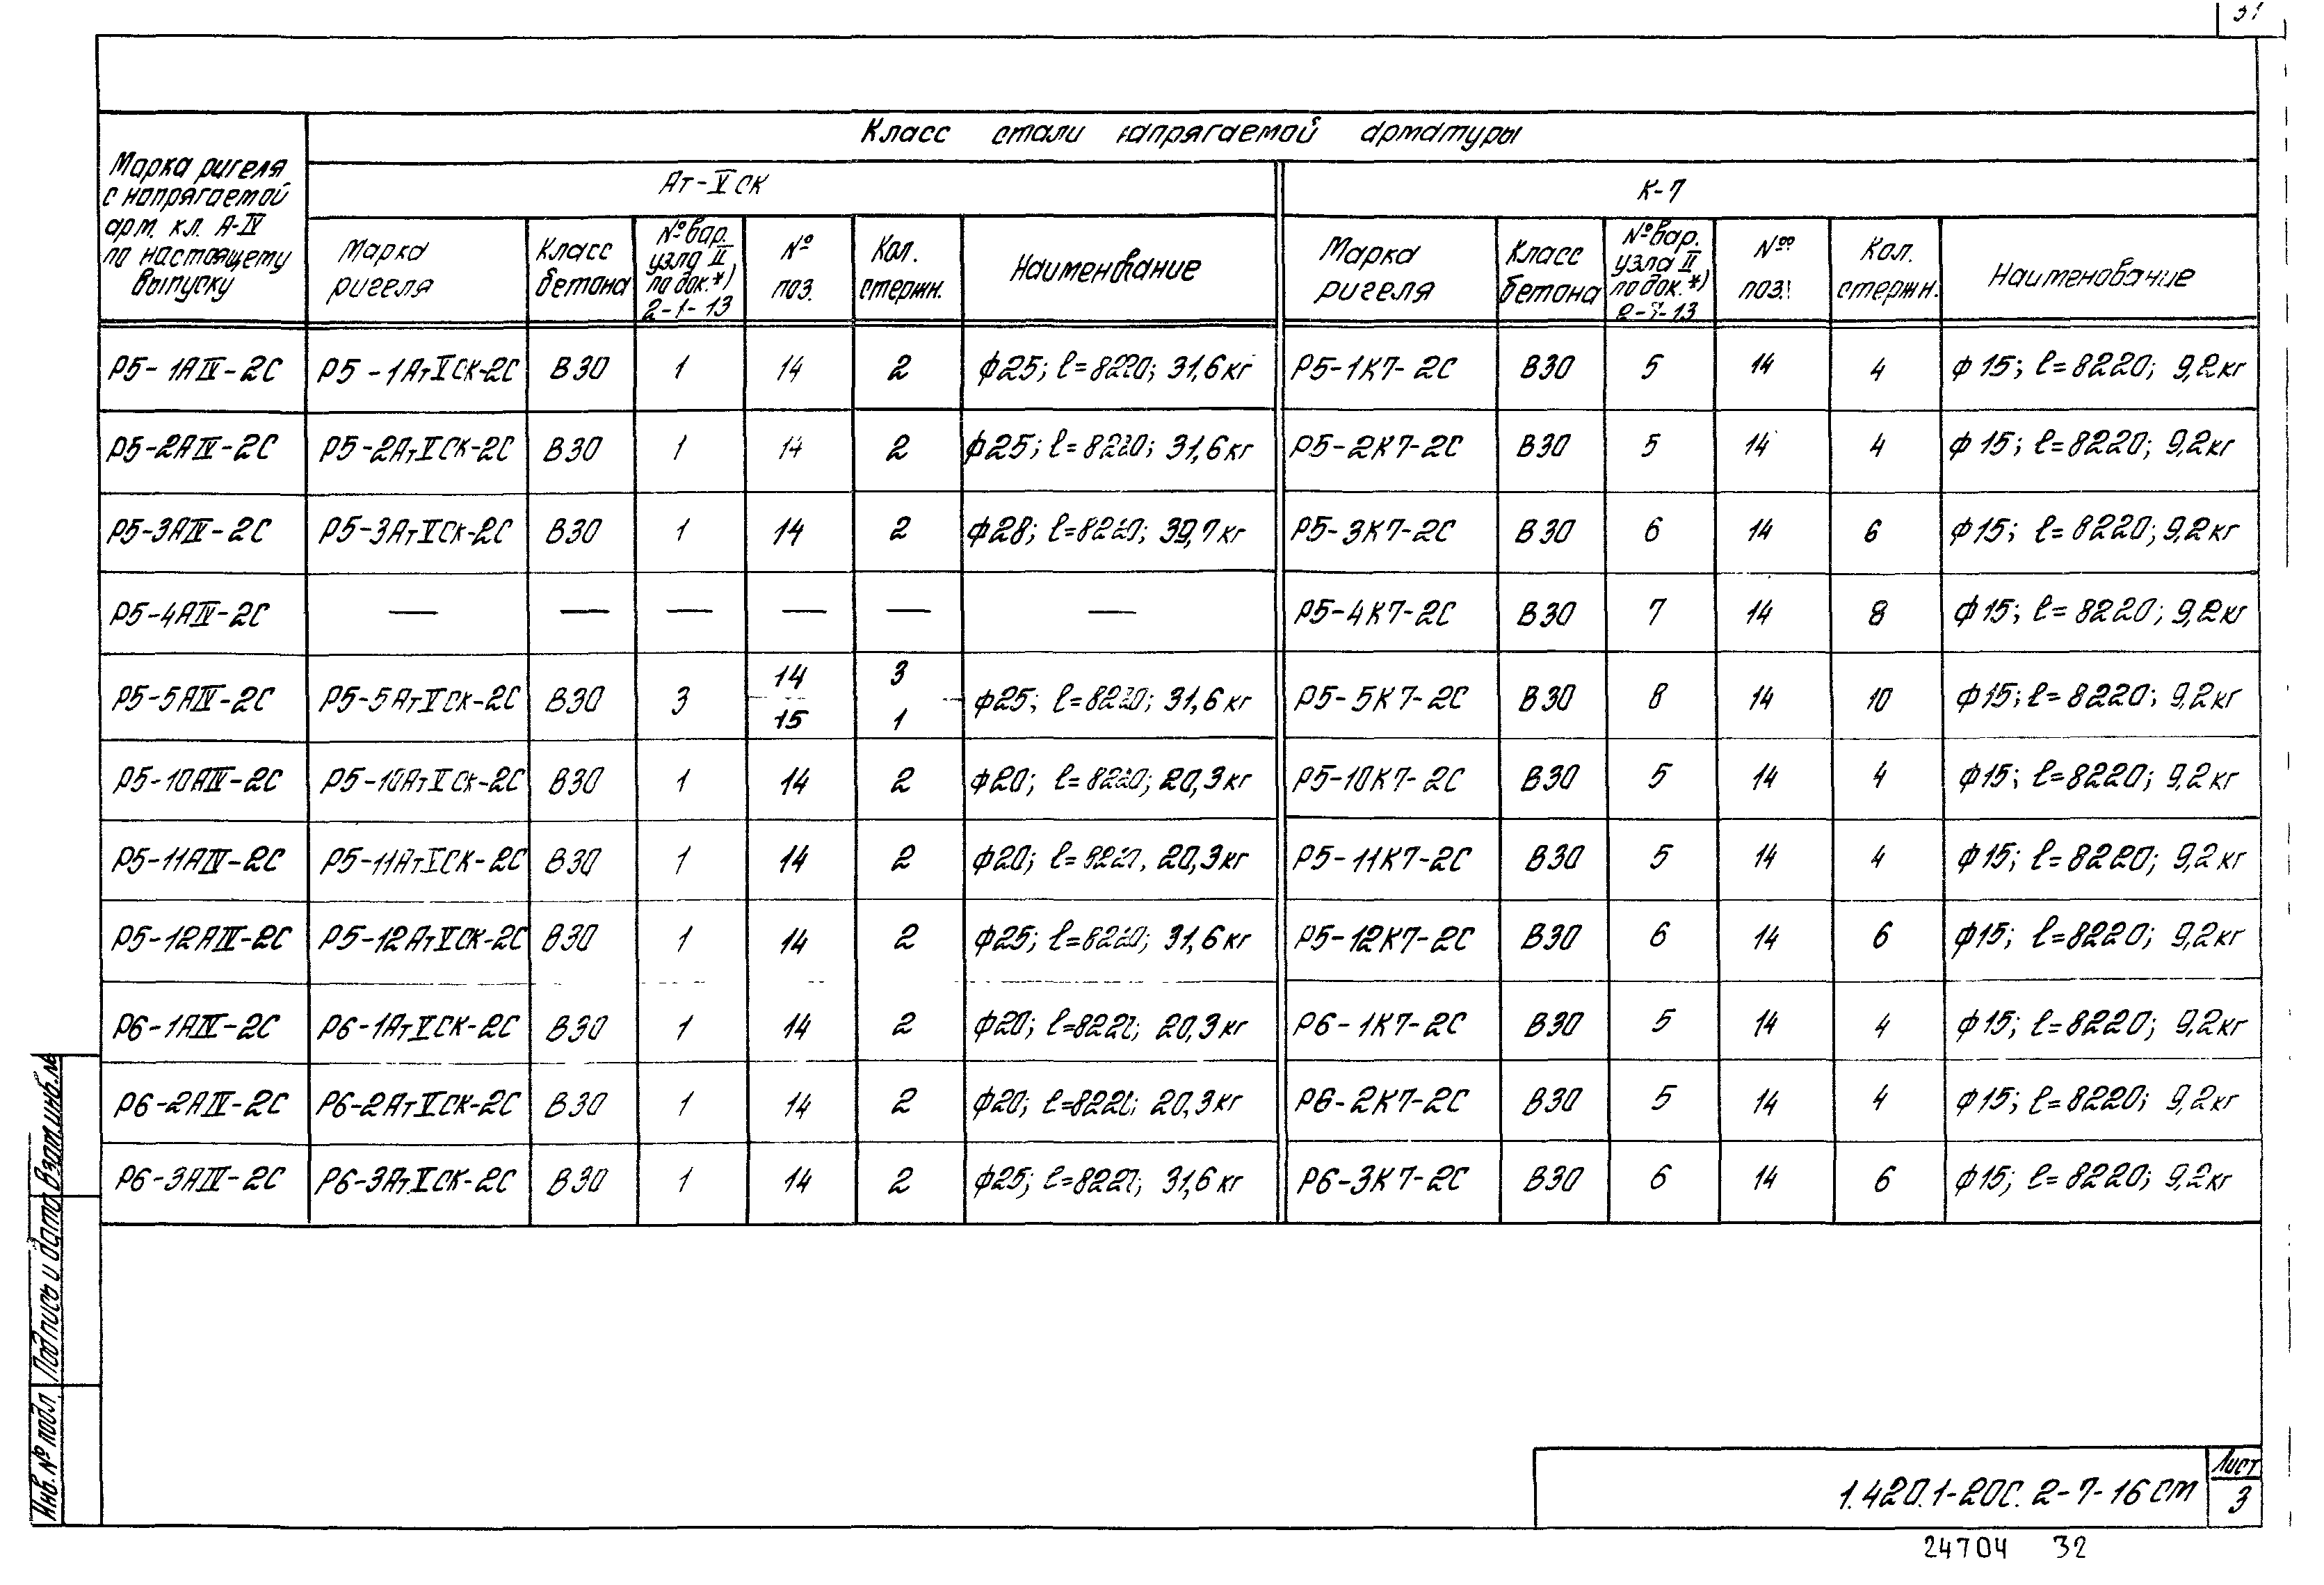 31
Класс стали напрягаемой арматуры
Марка ригеля
с напрягаемой
арм. кл. А-IV
по настоящему
выпуску
Ат-VСК
К-7
Марка
ригеля
Класс
бетона
№ вар.
узла II
по док.*)
2-1-13
№
поз.
Кол.
стержн.
Наименование
Марка
ригеля
Класс
бетона
№ вар.
узла II
по док.*)
№№
поз.
Кол.
стержн.
Наименование
Р5-1АIV-2С Р5-1АтVСК-2С В30 1 14 2 ф25; ℓ=8220; 31,6кг Р5-1К7-2С В30 5 14 4 ф15; ℓ=8220; 9,2кг
Р5-2АIV-2С Р5-2АтVСК-2С В30 1 14 2 ф25; ℓ=8220; 31,6кг Р5-2К7-2С В30 5 14 4 ф15; ℓ=8220; 9,2кг
Р5-3АIV-2С Р5-3АтVСК-2С В30 1 14 2 ф28; ℓ=8220; 39,7кг Р5-3К7-2С В30 6 14 6 ф15; ℓ=8220; 9,2кг
Р5-4АIV-2С — — — — — — Р5-4К7-2С В30 7 14 8 ф15; ℓ=8220; 9,2кг
Р5-5АIV-2С Р5-5АтVСК-2С В30 3 14 3 ф25; ℓ=8220; 31,6кг Р5-5К7-2С В30 8 14 10 ф15; ℓ=8220; 9,2кг
15 1
Р5-10АIV-2С Р5-10АтVСК-2С В30 1 14 2 ф20; ℓ=8220; 20,3кг Р5-10К7-2С В30 5 14 4 ф15; ℓ=8220; 9,2кг
Р5-11АIV-2С Р5-11АтVСК-2С В30 1 14 2 ф20; ℓ=8220, 20,3кг Р5-11К7-2С В30 5 14 4 ф15; ℓ=8220; 9,2кг
Р5-12АIV-2С Р5-12АтVСК-2С В30 1 14 2 ф25; ℓ=8220; 31,6кг Р5-12К7-2С В30 6 14 6 ф15; ℓ=8220; 9,2кг
Р6-1АIV-2С Р6-1АтVСК-2С В30 1 14 2 ф20; ℓ=8220; 20,3кг Р6-1К7-2С В30 5 14 4 ф15; ℓ=8220; 9,2кг
Р6-2АIV-2С Р6-2АтVСК-2С В30 1 14 2 ф20; ℓ=8220; 20,3кг Р6-2К7-2С В30 5 14 4 ф15; ℓ=8220; 9,2кг
Р6-3АIV-2С Р6-3АтVСК-2С В30 1 14 2 ф25; ℓ=8220; 31,6кг Р6-3К7-2С В30 6 14 6 ф15; ℓ=8220; 9,2кг
Взам.инв.№
Подпись и дата
Инв.№ подл.
1.420.1-20С.2-7-16СМ
Лист
3
24704 32